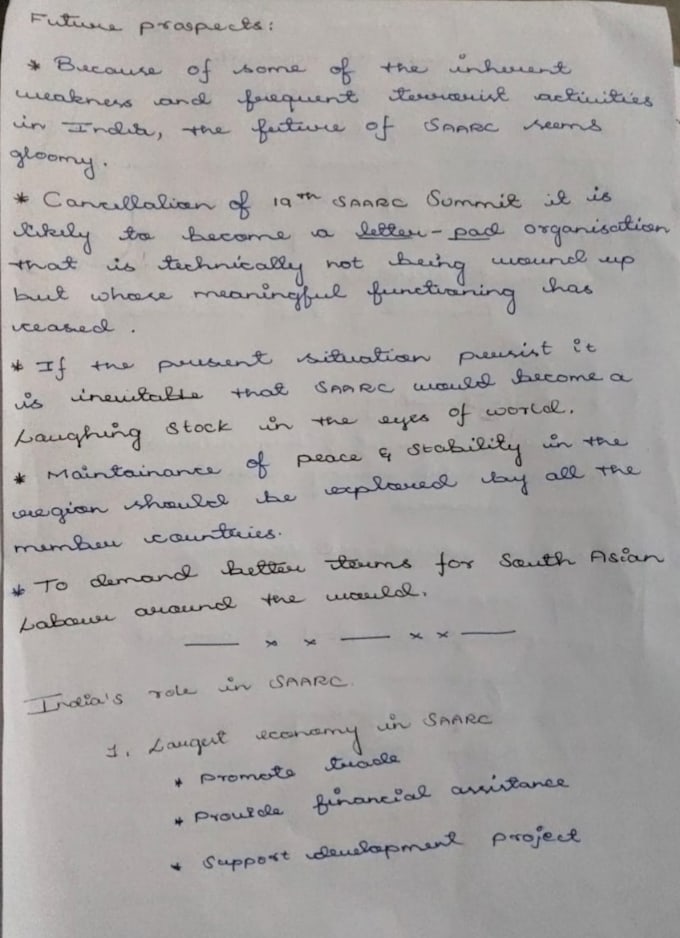 Future prospects:
* Because of some of the inherent
weakness and frequent terrorist activities
in India, the future of SAARC seems
gloomy.
* Cancellation of 19th SAARC Summit it is
likely to become a letter-pad organisation
that is technically not being wound up
but whose meaningful functioning has
ceased.
* If the present situation persist it
is inevitable that SAARC would become a
Laughing stock in the eyes of world.
* Maintainance of peace & stability in the
region should be explored by all the
member countries.
* To demand better terms for South Asian
Labour around the world.
— x x — x x —
India's role in SAARC
1. Largest economy in SAARC
* Promote trade
* Provide financial assistance
* Support development project